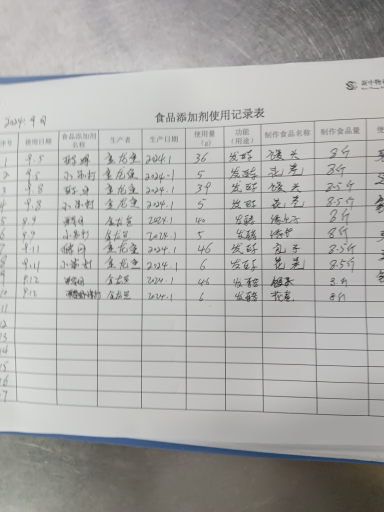 2024.9月
食品添加剂使用记录表
序号 使用日期 食品添加剂名称 生产者 生产日期 使用量(g) 功能(用途) 制作食品名称 制作食品量 使
1 9.5 酵母 金龙鱼 2024.1 36 发酵 馒头 8斤
2 9.5 小苏打 金龙鱼 2024.1 5 发酵 花卷 8斤
3 9.8 酵母 金龙鱼 2024.1 39 发酵 馒头 8.5斤
4 9.8 小苏打 金龙鱼 2024.1 5 发酵 花卷 8.5斤
5 9.9 金龙鱼 2024.1 40 发酵 8斤
6 9.9 小苏打 金龙鱼 2024.1 5 发酵 8斤
7 9.11 酵母 金龙鱼 2024.1 46 发酵 包子 8.5斤
8 9.11 小苏打 金龙鱼 2024.1 6 发酵 花卷 8.5斤
9 9.12 金龙鱼 2024.1 46 发酵
10 9.12 金龙鱼 2024.1 6 发酵 花卷 8斤
11
12
13
14
15
16
17